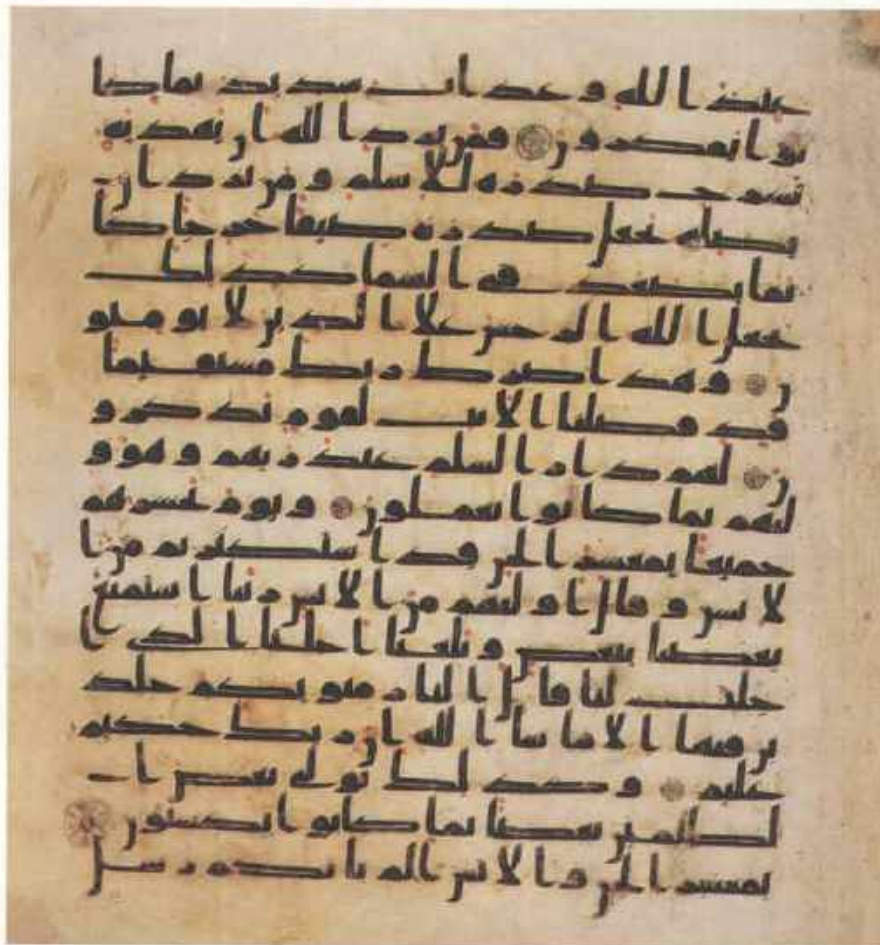 عند الله وعذاب شديد بما كا
نوا يمكرون فمن يرد الله ان يهديه
يشرح صدره للاسلم ومن يرد ان
يضله يجعل صدره ضيقا حرجا كا
نما يصعد في السما كذلك
يجعل الله الرجس علا الذين لا يومنو
ن وهذا صرط ربك مستقيما
قد فصلنا الايت لقوم يذكرو
ن لهم دار السلم عند ربهم وهو و
ليهم بما كانوا يعملون ويوم نحشرهم
جميعا يمعشر الجن قد استكثرتم من ا
لانس وقال اوليهم من الانس ربنا استمتع
بعضنا ببعض وبلغنا اجلنا الذي ا
جلت لنا قال النار مثويكم خلد
ين فيها الا ما شا الله ان ربك حكيم
عليم وكذلك نولي بعض ا
لظلمين بعضا بما كانوا يكسبون
يمعشر الجن والانس الم ياتكم رسل